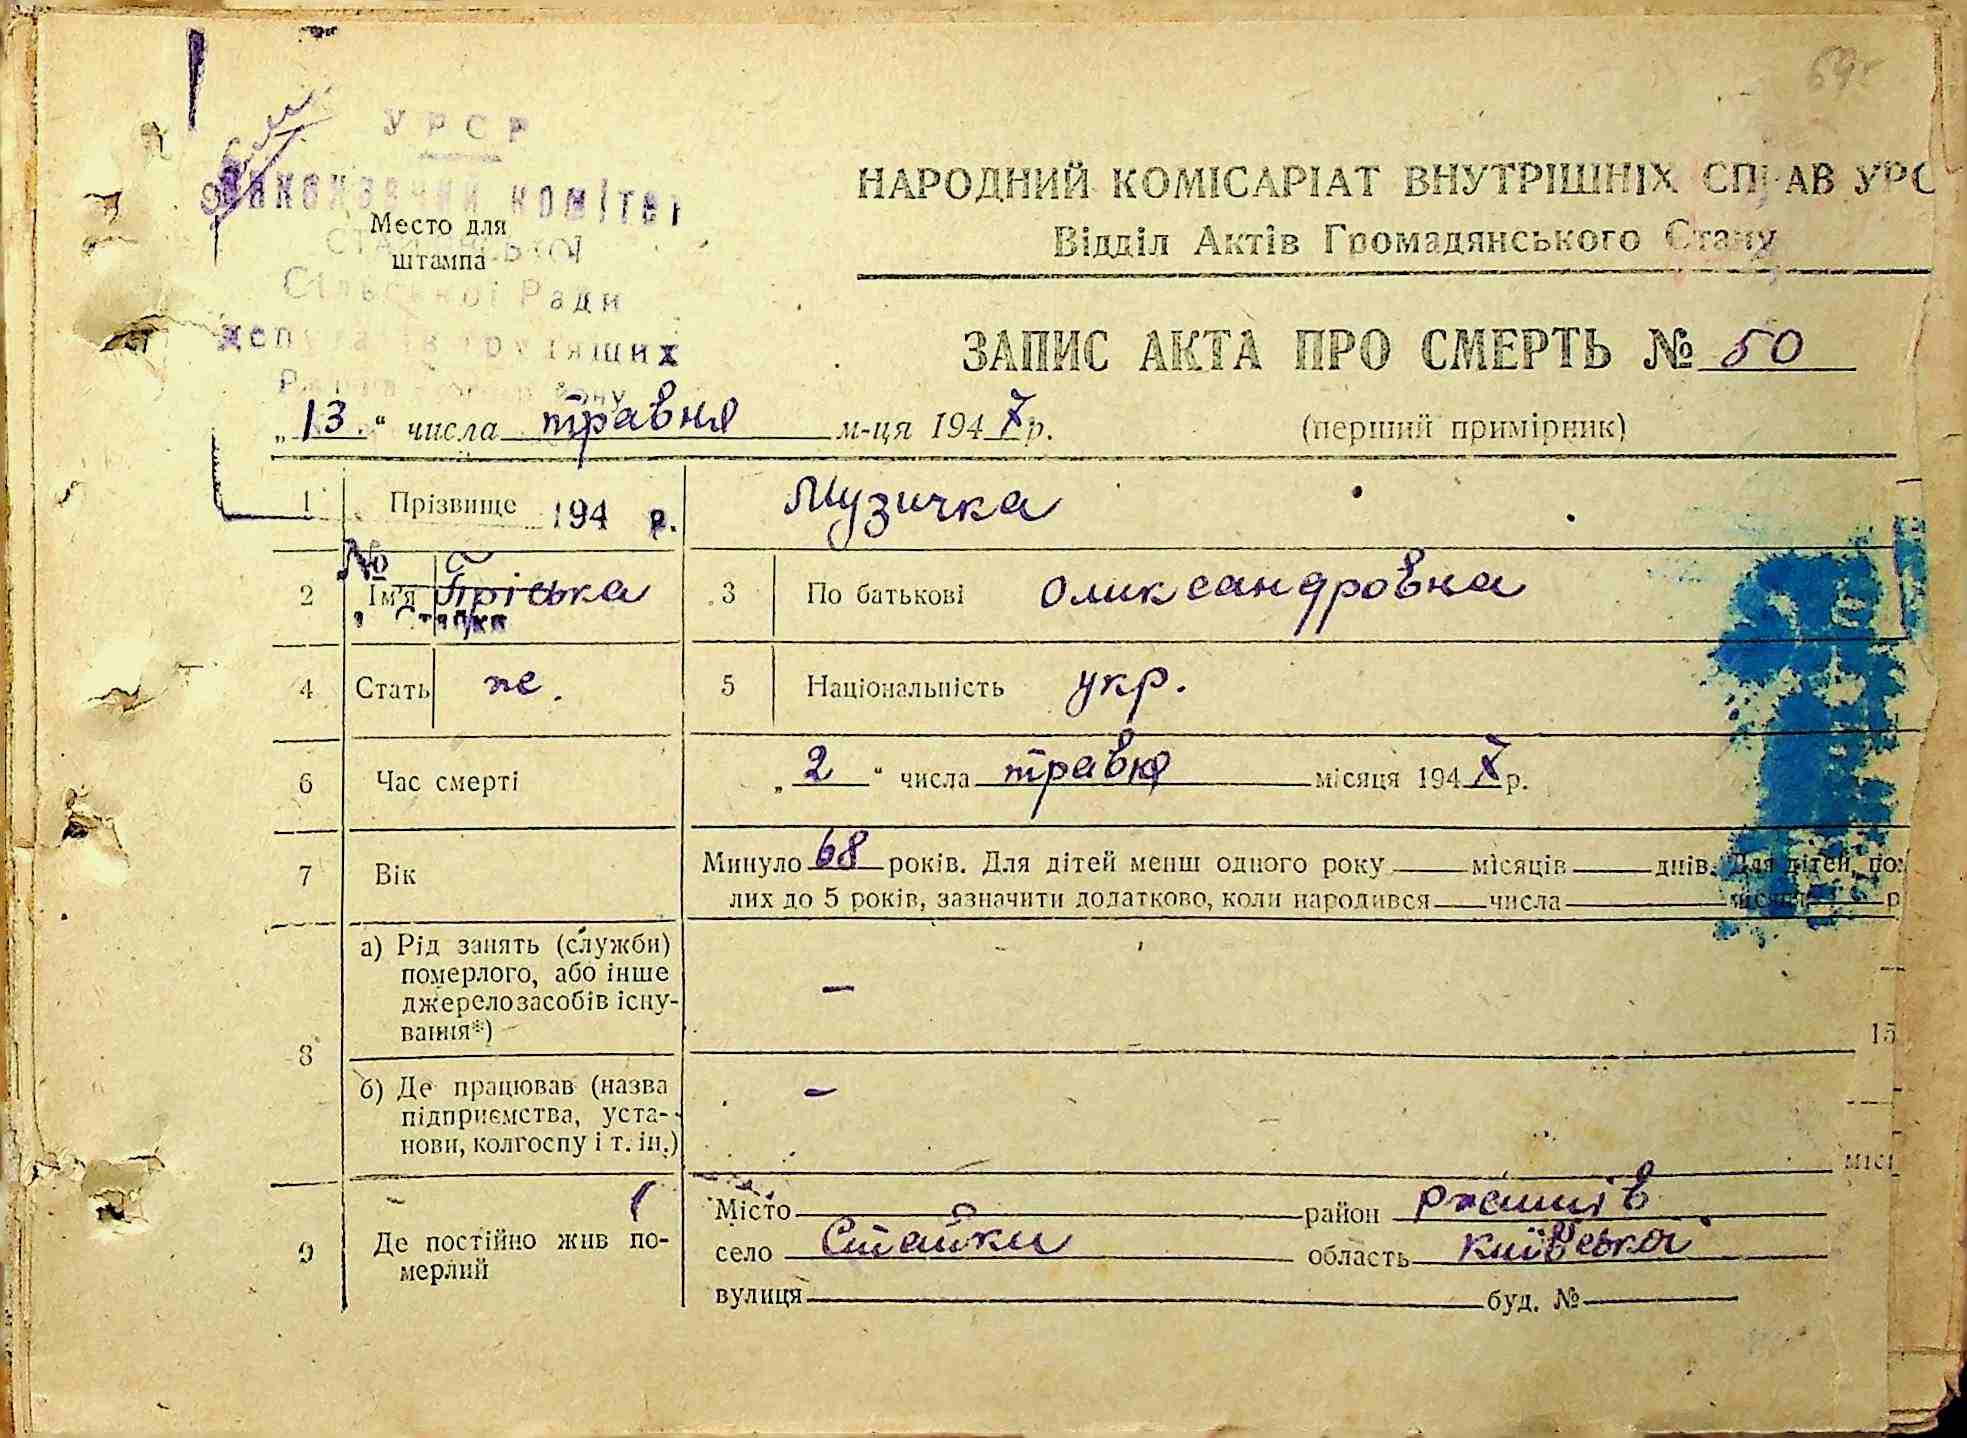 УРСР
Виконавчий комітет
Место для
штампа
Сільської Ради
депутатів трудящих
НАРОДНИЙ КОМІСАРІАТ ВНУТРІШНІХ СПРАВ УРС
Відділ Актів Громадянського Стану
ЗАПИС АКТА ПРО СМЕРТЬ № 50
„13“ числа травня м-ця 1947 р. (перший примірник)
1 Прізвище 194 р. Музичка
№
2 Ім'я Пріська 3 По батькові Олександровна
с. Стайки
4 Стать ж. 5 Національність укр.
6 Час смерті „2“ числа травня місяця 1947 р.
7 Вік Минуло 68 років. Для дітей менш одного року місяців днів. Для дітей, по
лих до 5 років, зазначити додатково, коли народився числа місяця р
8 а) Рід занять (служби)
померлого, або інше
джерело засобів існу-
вання*) –
15
б) Де працював (назва
підприємства, уста-
нови, колгоспу і т. ін.) –
місі
9 Де постійно жив по-
мерлий
Місто район Ржищів
село Стайки область Київська
вулиця буд. №